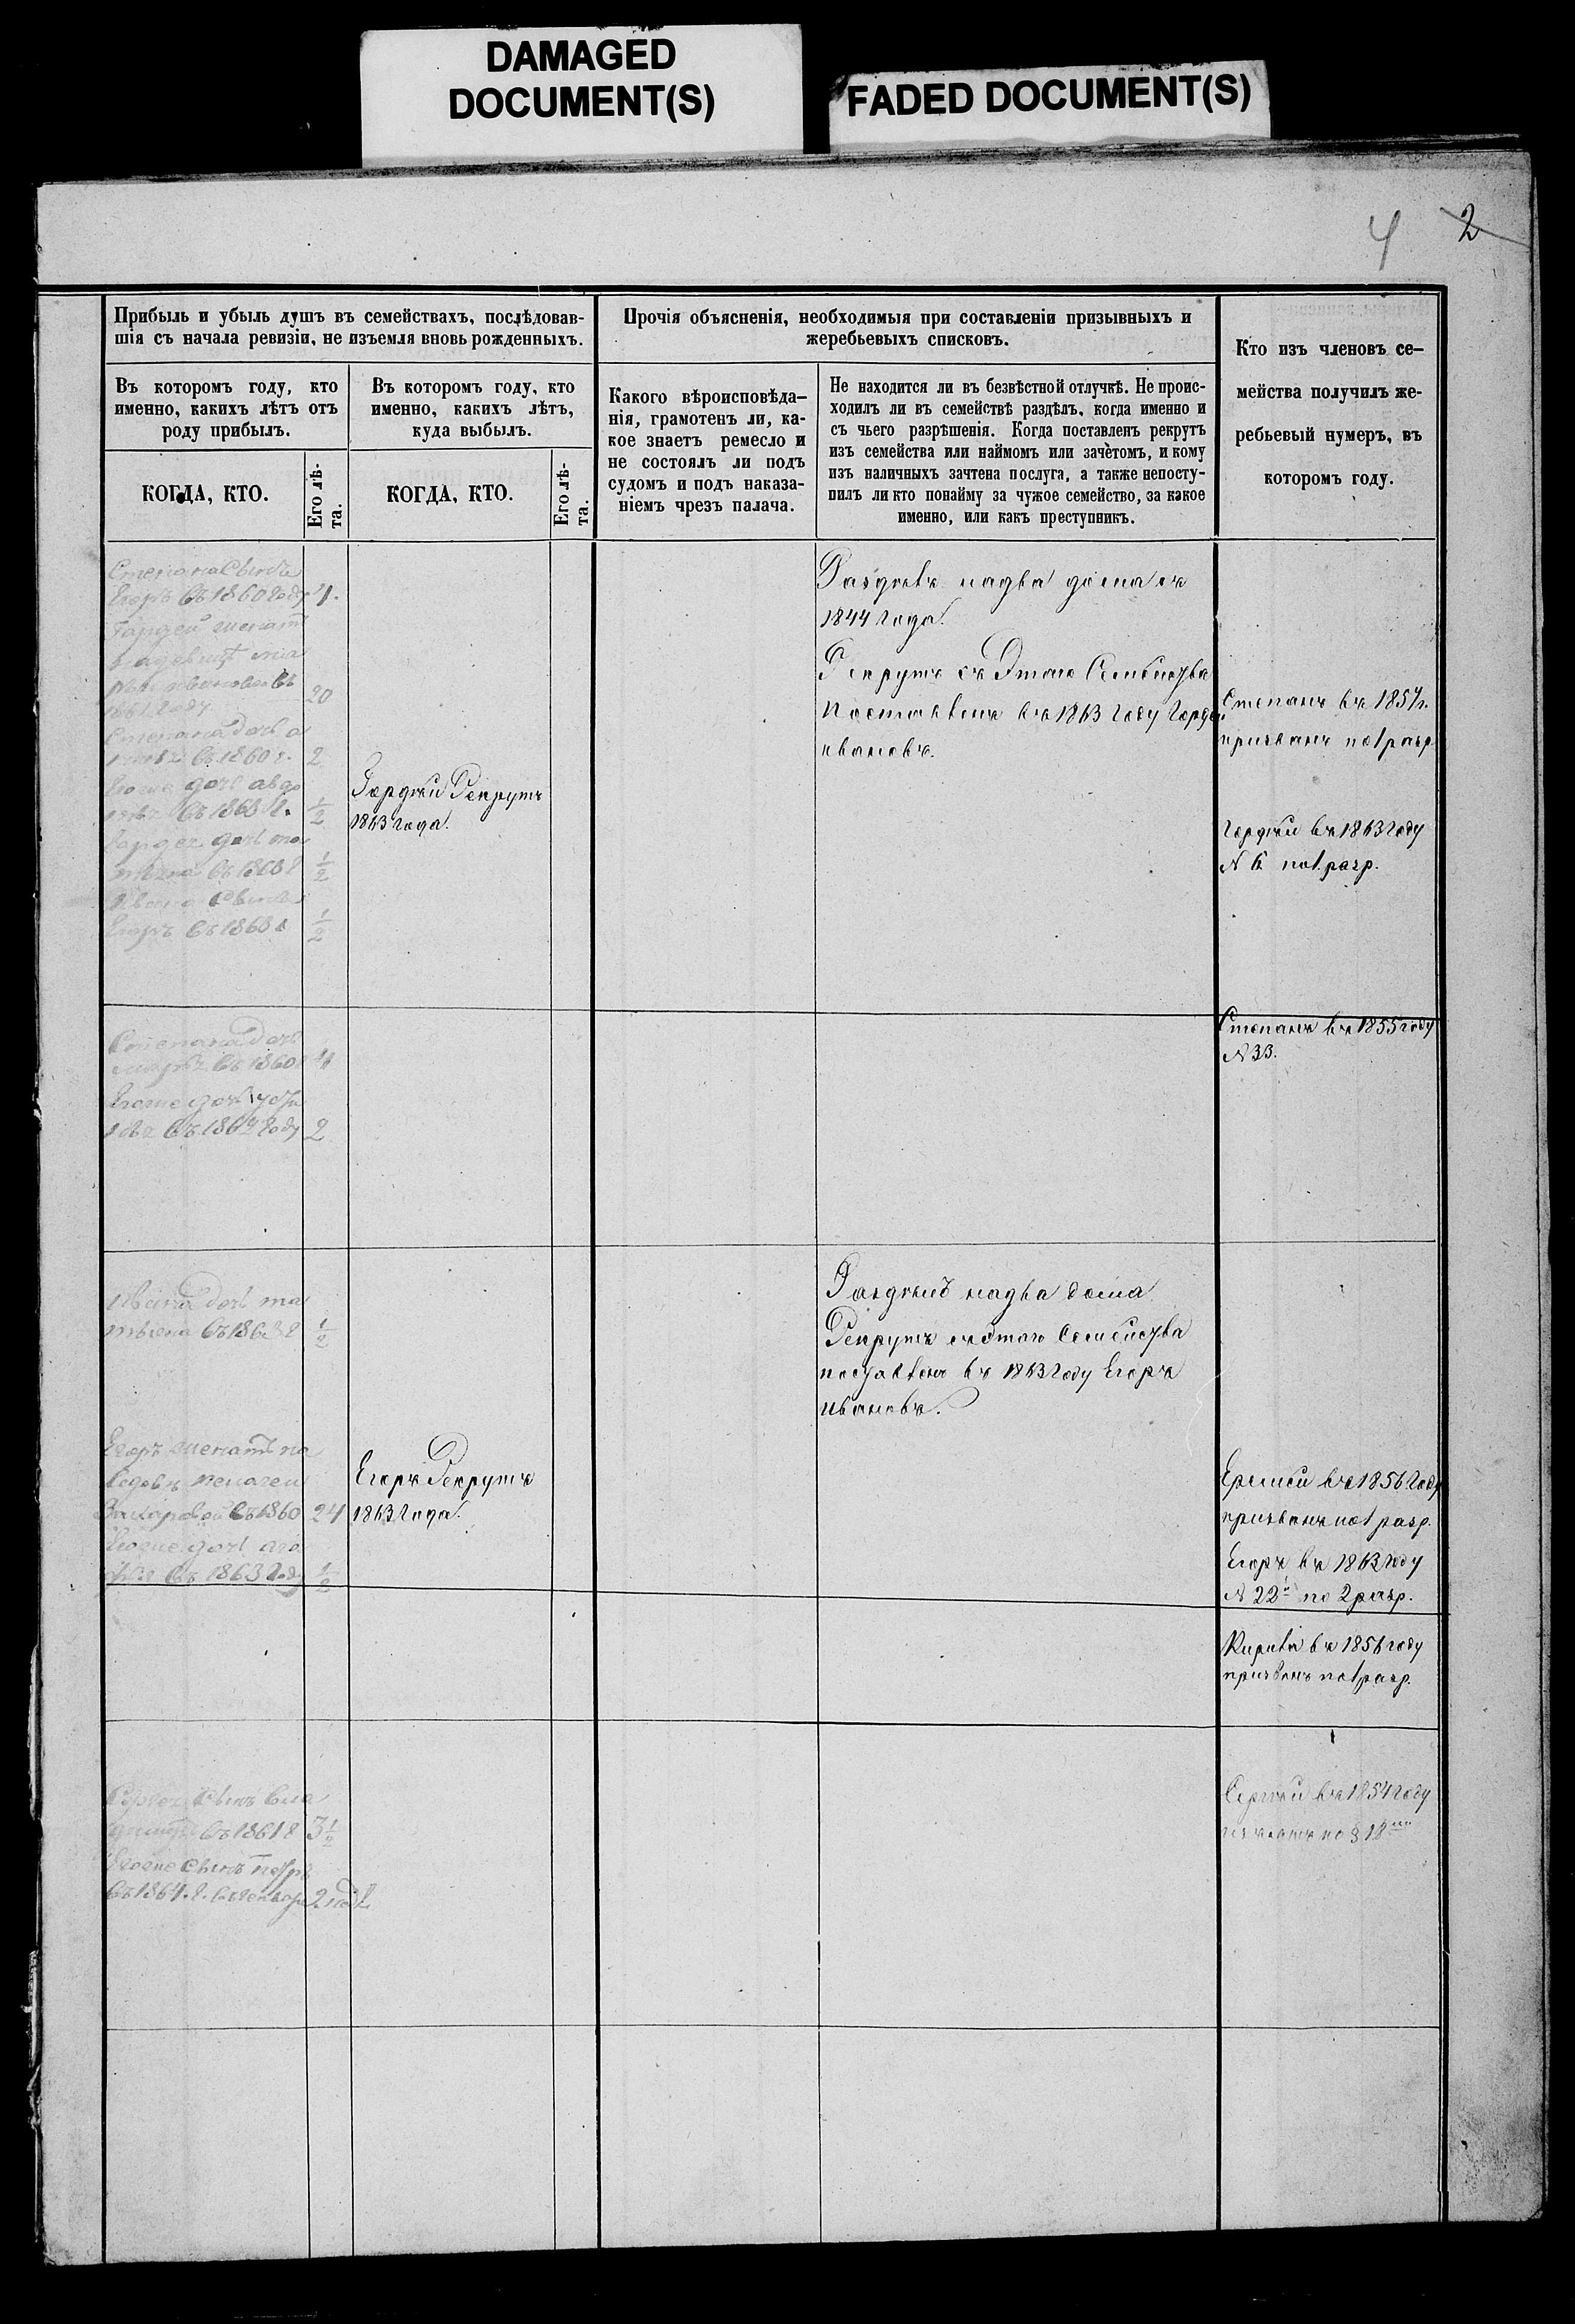 DAMAGED
DOCUMENT(S)
FADED DOCUMENT(S)
4 2
Прибыль и убыль душъ въ семействахъ, послѣдовав-
шія съ начала ревизіи, не изъемля вновь рожденныхъ.
Въ которомъ году, кто
именно, какихъ лѣтъ отъ
роду прибылъ.
КОГДА, КТО.
Его лѣ-
та.
Въ которомъ году, кто
именно, какихъ лѣтъ,
куда выбылъ.
КОГДА, КТО.
Его лѣ-
та.
Прочія объясненія, необходимыя при составленіи призывныхъ и
жеребьевыхъ списковъ.
Какого вѣроисповѣда-
нія, грамотенъ ли, ка-
кое знаетъ ремесло и
не состоялъ ли подъ
судомъ и подъ наказа-
ніемъ чрезъ палача.
Не находится ли въ безвѣстной отлучкѣ. Не проис-
ходилъ ли въ семействѣ раздѣлъ, когда именно и
съ чьего разрѣшенія. Когда поставленъ рекрутъ
изъ семейства или наймомъ или зачетомъ, и кому
изъ наличныхъ зачтена послуга, а также непосту-
пилъ ли кто понайму за чужое семейство, за какое
именно, или какъ преступникъ.
Кто изъ членовъ се-
мейства получилъ же-
ребьевый нумеръ, въ
которомъ году.
Степана сынъ
Егоръ въ 1860 году 4.
Гордей женатъ
въ 20
1861 году
Степана дочь
въ 1860 г. 2
Егоже дочь авдо
въ 1863 г. 1/2
Гордея дочь
въ 1863 г 1/2
Ивана сынъ
Егоръ въ 1863 г 1/2
Гордѣй Рекрутъ
1863 года.
Раздѣлъ надва дома съ
1844 года.
Рекрутъ съ Этаго Семейства
поставленъ въ 1863 году Гордѣй
ивановъ.
Степанъ въ 1854 г.
призванъ по 1 разр.
Гордѣй въ 1863 году
N 6 по 1 разр.
Степана дочь
въ 1860 г 4
Егоже дочь
въ году 2
Степанъ въ 1855 году
N 33.
Ивана дочь ма
трвена въ 1863 г 1/2
Раздѣлъ надва дома
Рекрутъ съэтаго Семейства
поставленъ въ 1863 году Егоръ
ивановъ.
Егоръ женатъ на
Захаровой въ 1860 24
Егоже дочь
въ 1863 год 1/2
Егоръ Рекрутъ
1863 года.
Еремей въ 1856 году
призванъ по 1 разр.
Егоръ въ 1863 году
N 22й по 2 разр.
Кирила въ 1856 году
призванъ по 1 разр.
Сергея сынъ вла
димиръ въ 1861 г 3 1/2
Егоже сынъ петръ
въ 1864. г.
Сергѣй въ 1854 году
по § 18